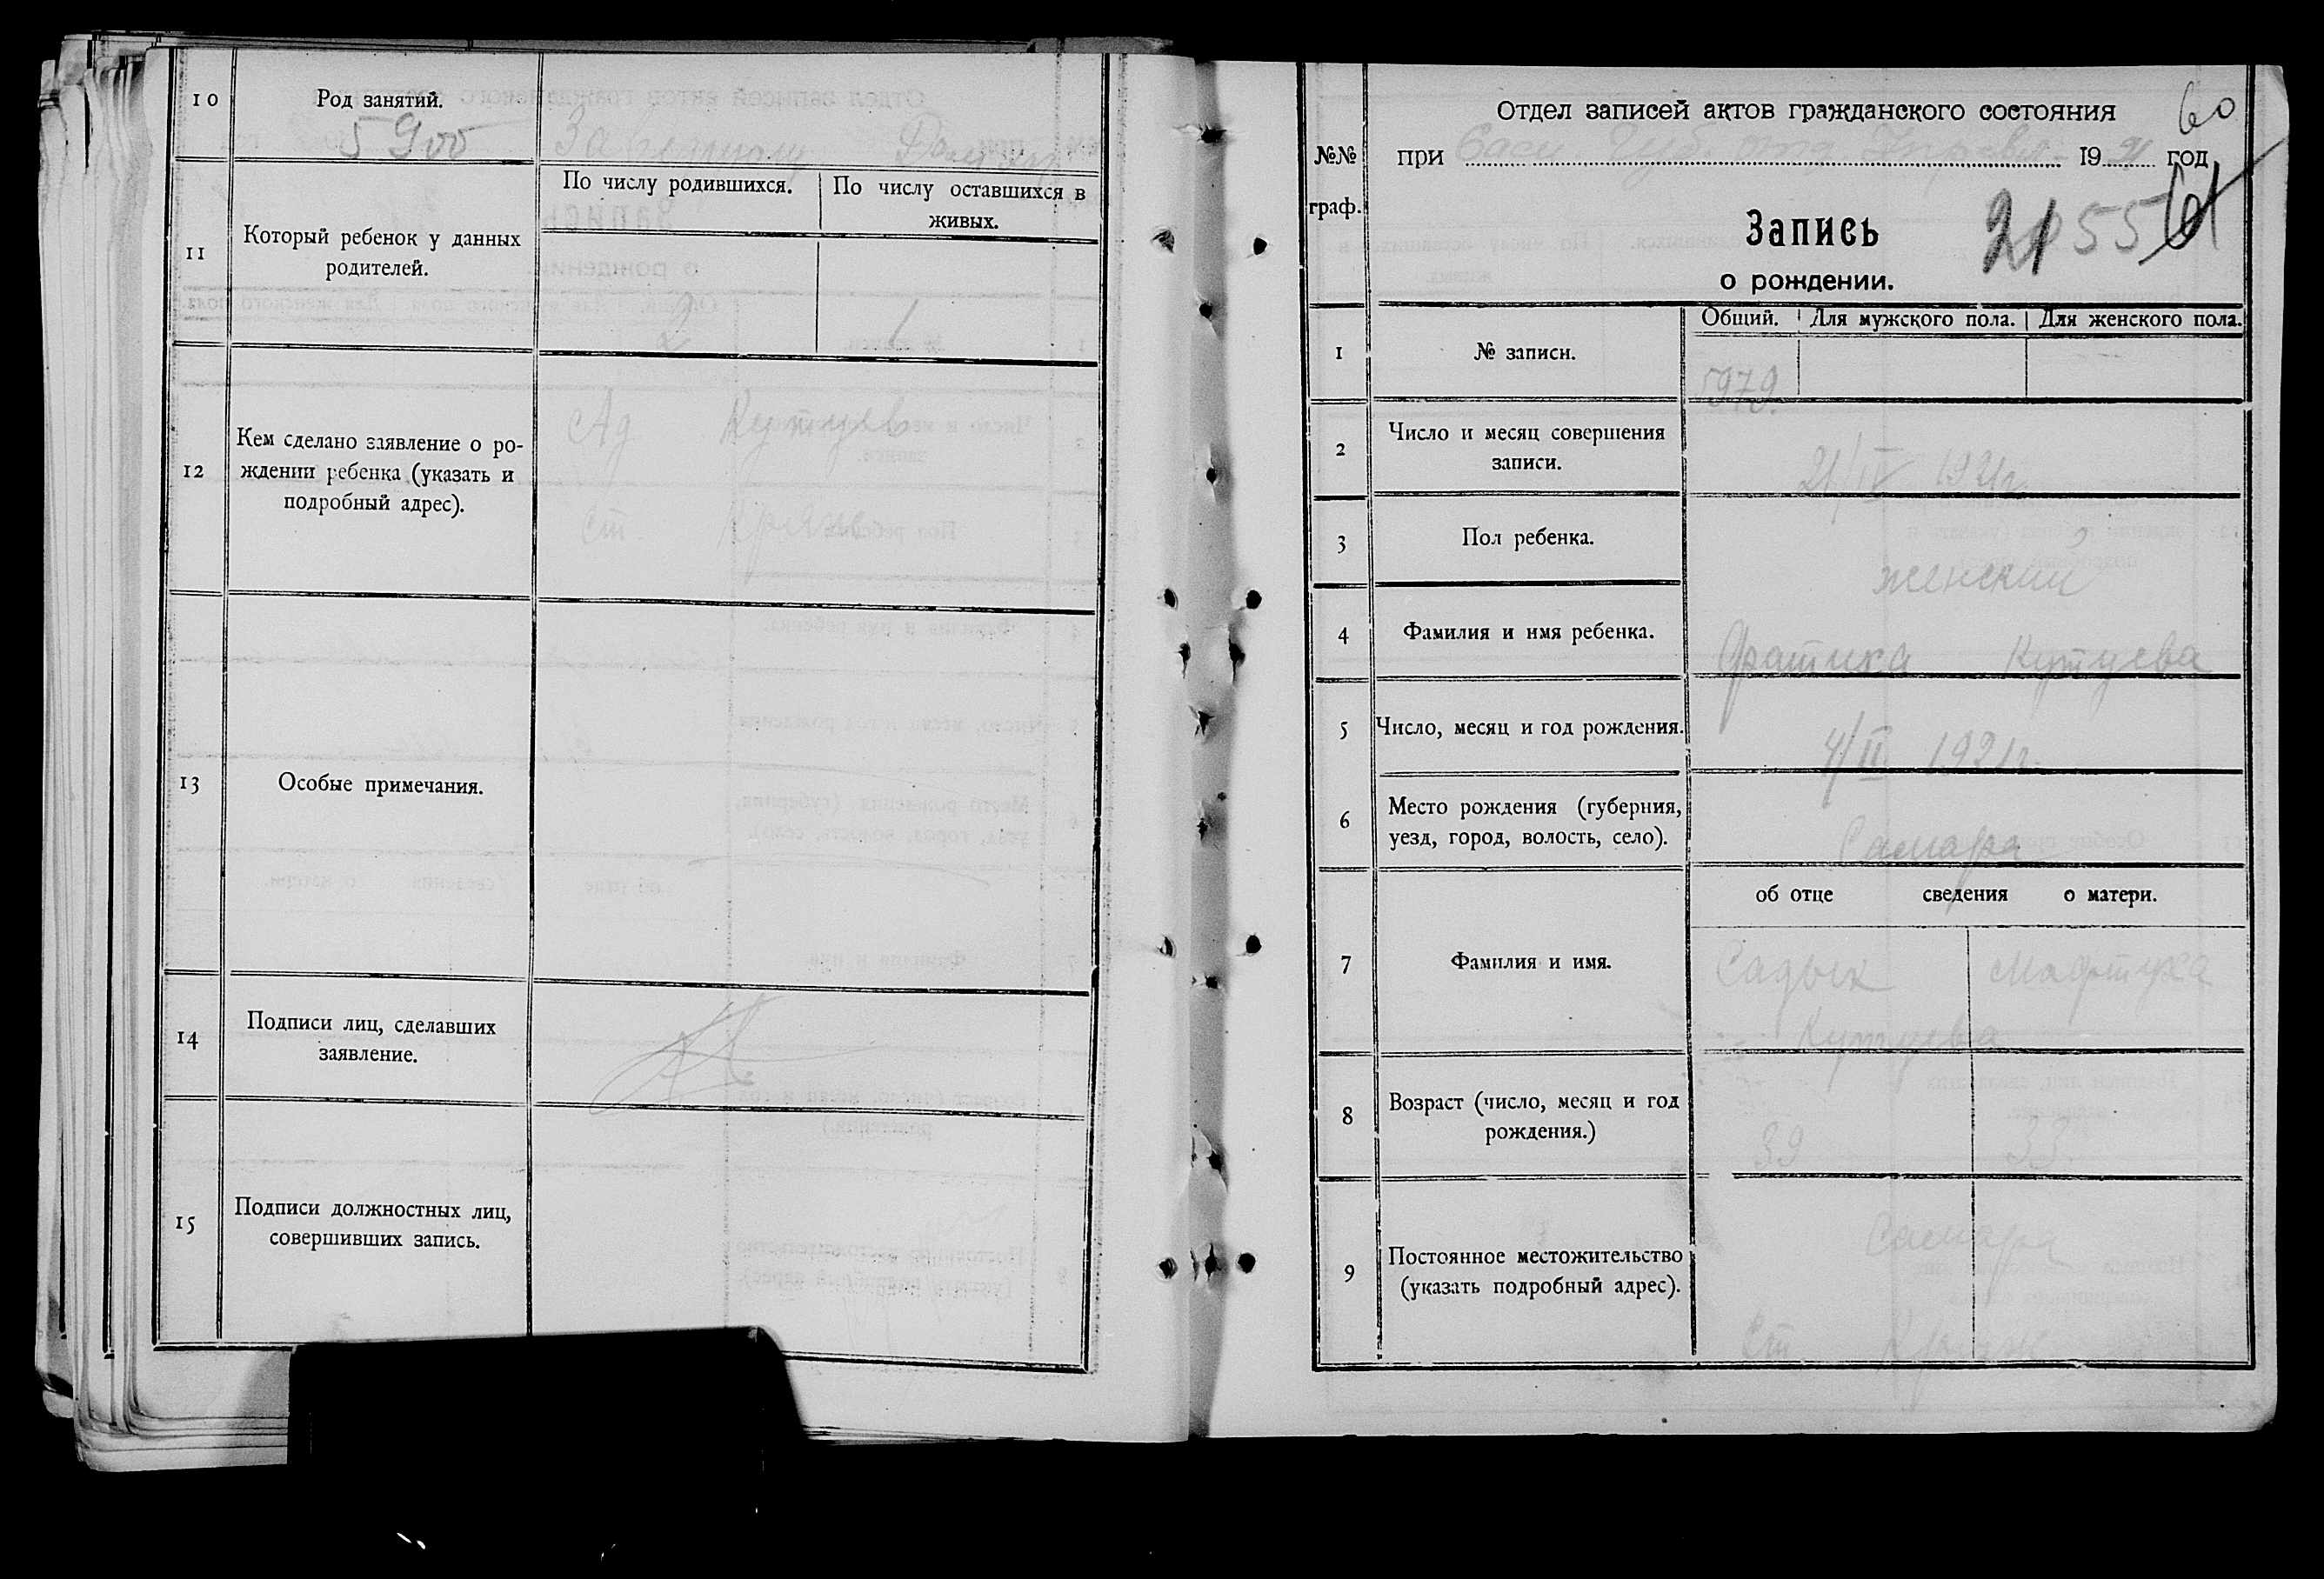 10 Род занятий.
5900
По числу родившихся. По числу оставшихся в
живых.
11 Который ребенок у данных
родителей.
2 1
12 Кем сделано заявление о ро-
ждении ребенка (указать и
подробный адрес).
Кутуев
ст.
13 Особые примечания.
14 Подписи лиц, сделавших
заявление.
15 Подписи должностных лиц,
совершивших запись.
60
Отдел записей актов гражданского состояния
№№ при 1921 год
граф.
Запись
21
о рождении.
Общий. Для мужского пола. Для женского пола.
1 № записи.
5979.
2 Число и месяц совершения
записи.
21/IV 1921г.
3 Пол ребенка.
женский
4 Фамилия и имя ребенка.
Фатиха Кутуева
5 Число, месяц и год рождения.
4/II 1921г.
6 Место рождения (губерния,
уезд, город, волость, село).
Самара
об отце сведения о матери.
7 Фамилия и имя.
Садык Мафтуха
Кутуева
8 Возраст (число, месяц и год
рождения.)
39 33
Самара
9 Постоянное местожительство
(указать подробный адрес).
ст